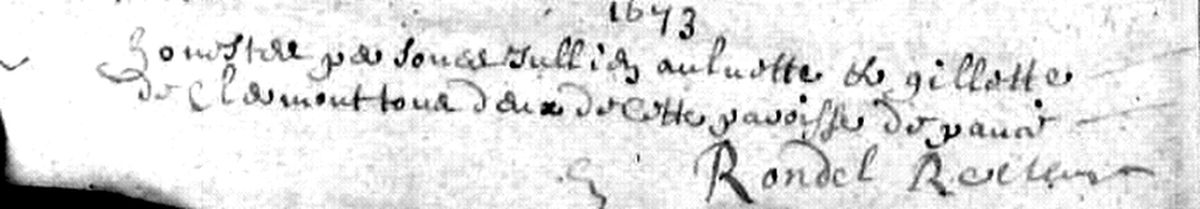 1673
honestee personne Jullien aulnette & gillette
de Clermont tous deux de cette paroisse de pancé
Rondel Recteur